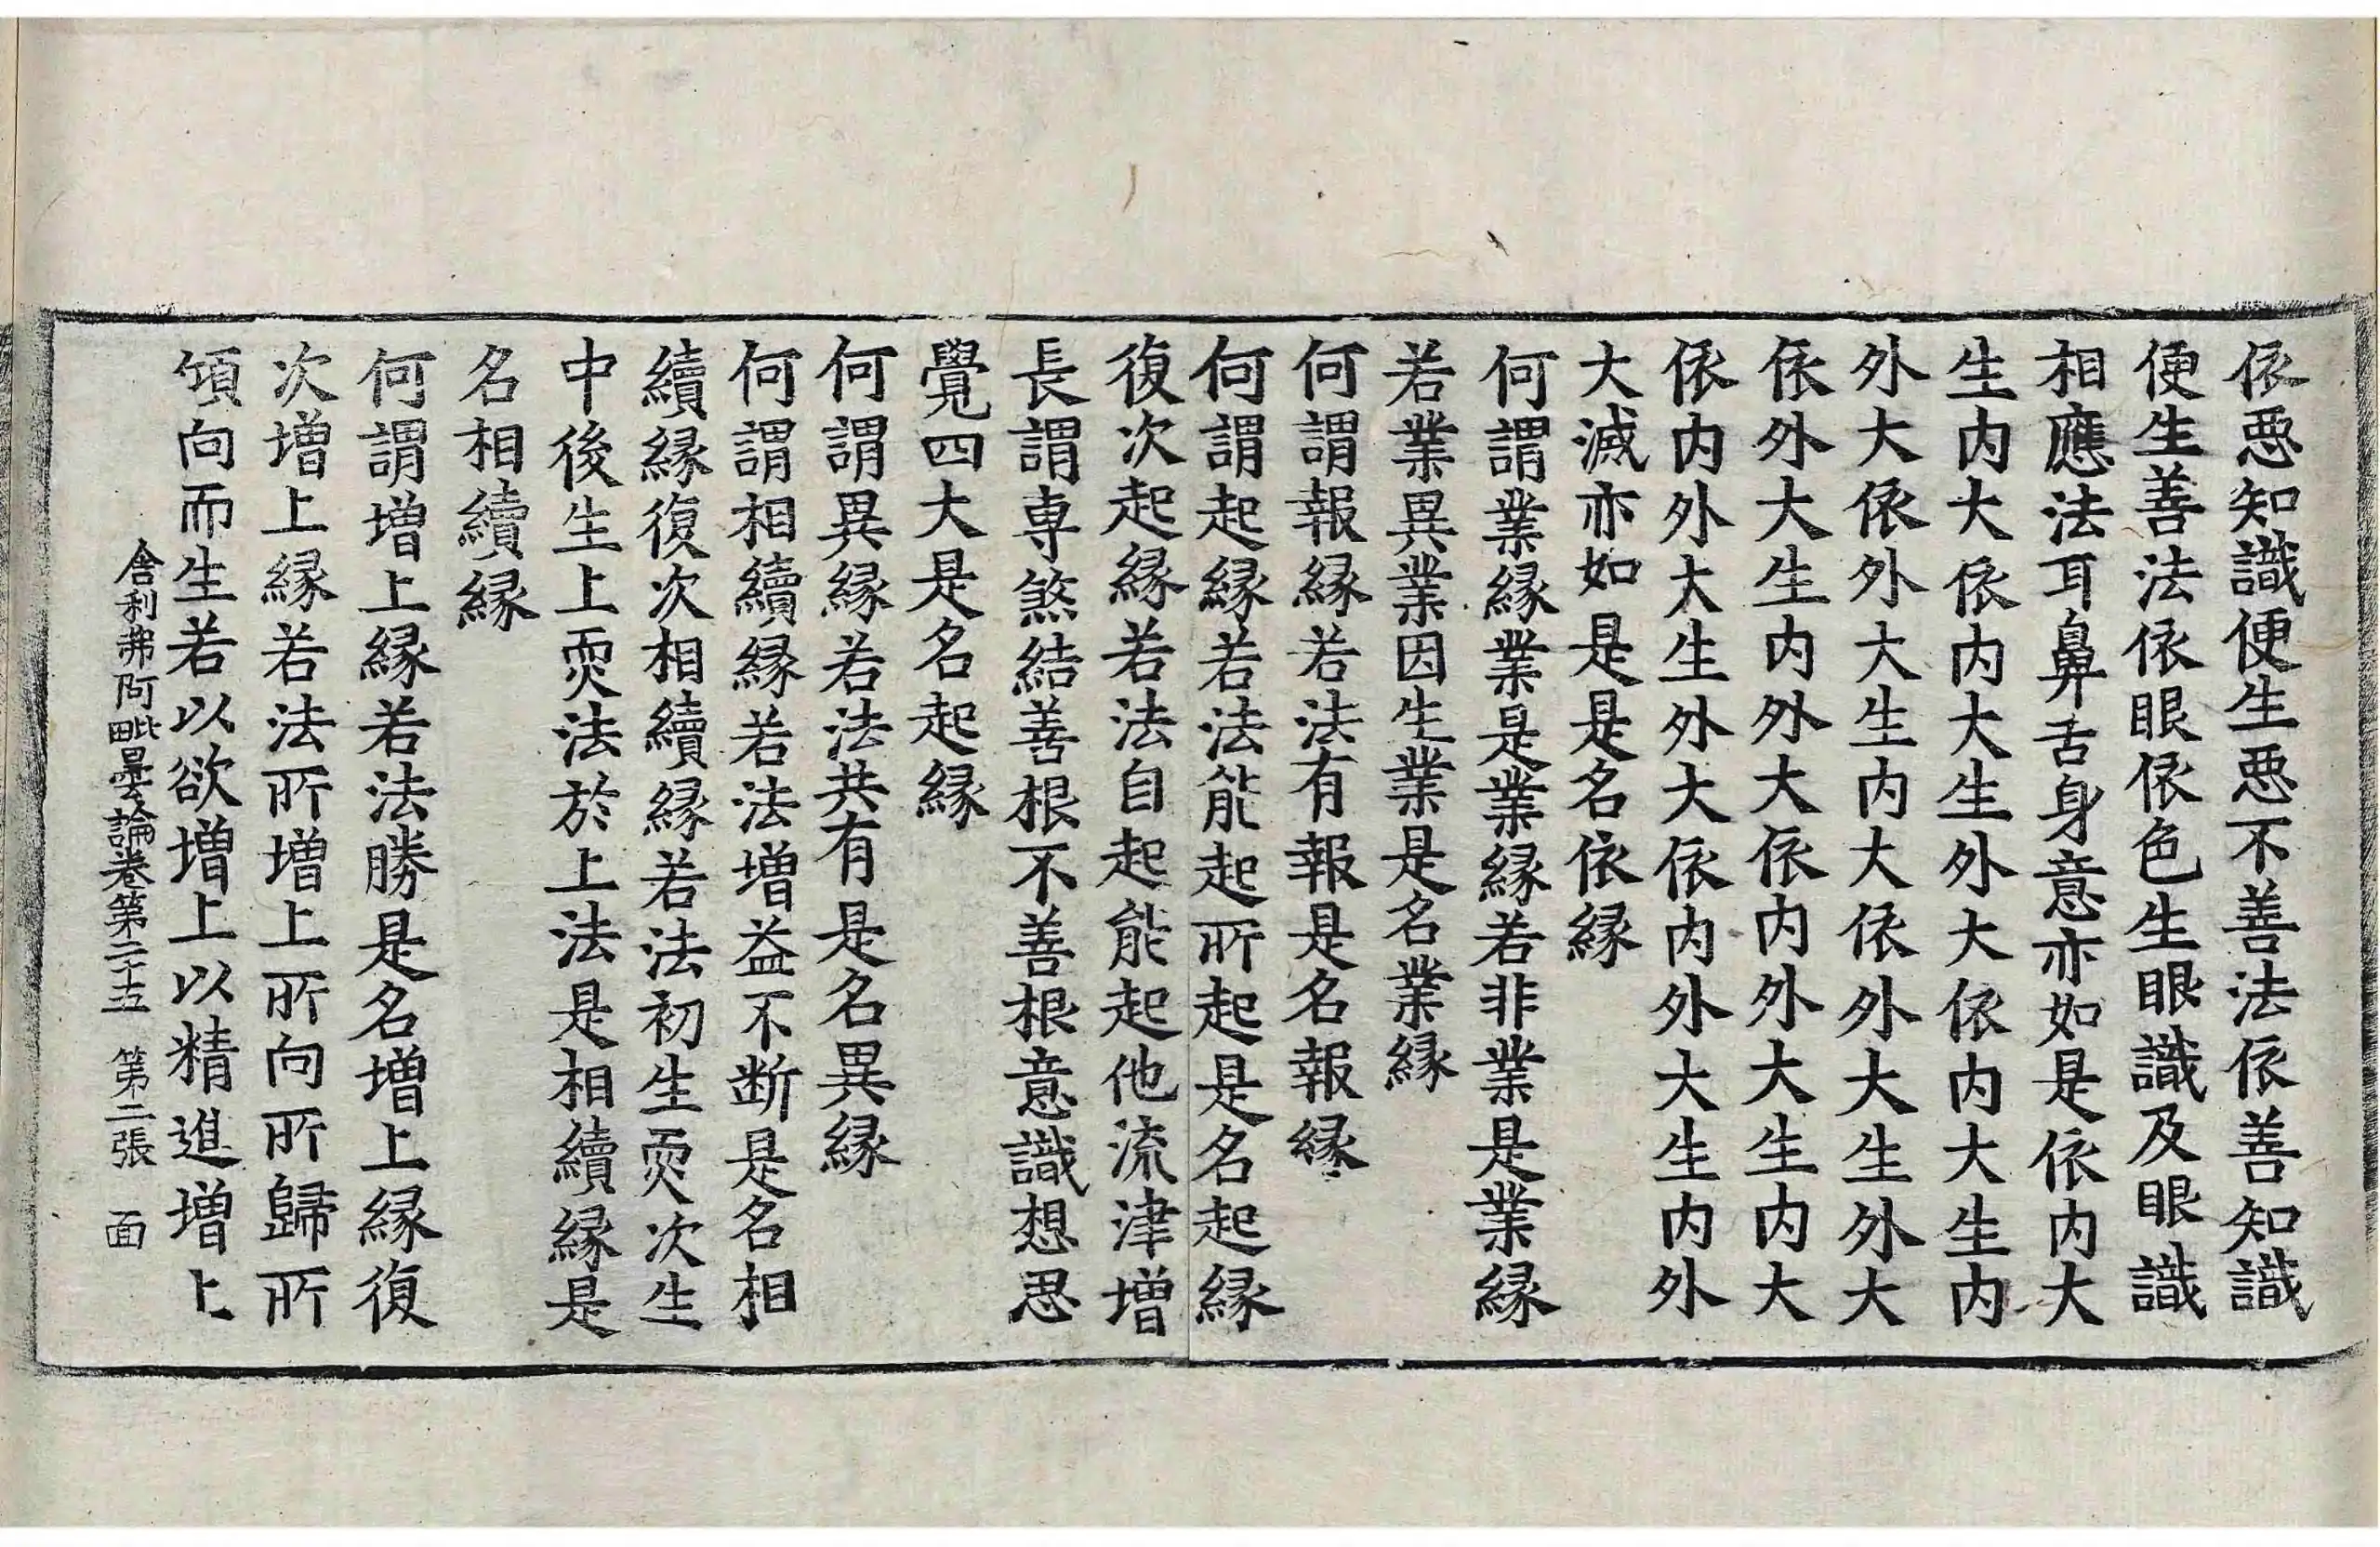 依惡知識便生惡不善法依善知識
便生善法依眼依色生眼識及眼識
相應法耳鼻舌身意亦如是依内大
生内大依内大生外大依内大生内
外大依外大生内大依外大生外大
依外大生内外大依内外大生内大
依内外大生外大依内外大生内外
大滅亦如是是名依縁
何謂業縁業是業縁若非業是業縁
若業異業因生業是名業縁
何謂報縁若法有報是名報縁
何謂起縁若法能起所起是名起縁
復次起縁若法自起能起他流津增
長謂専煞結善根不善根意識想思
覺四大是名起縁
何謂異縁若法共有是名異縁
何謂相續縁若法增益不断是名相
續縁復次相續縁若法初生耎次生
中後生上耎法於上法是相續縁是
名相續縁
何謂增上縁若法勝是名增上縁復
次增上縁若法所增上所向所歸所
傾向而生若以欲增上以精進增上
舎利弗阿毗曇論卷第二十五 第二張 面